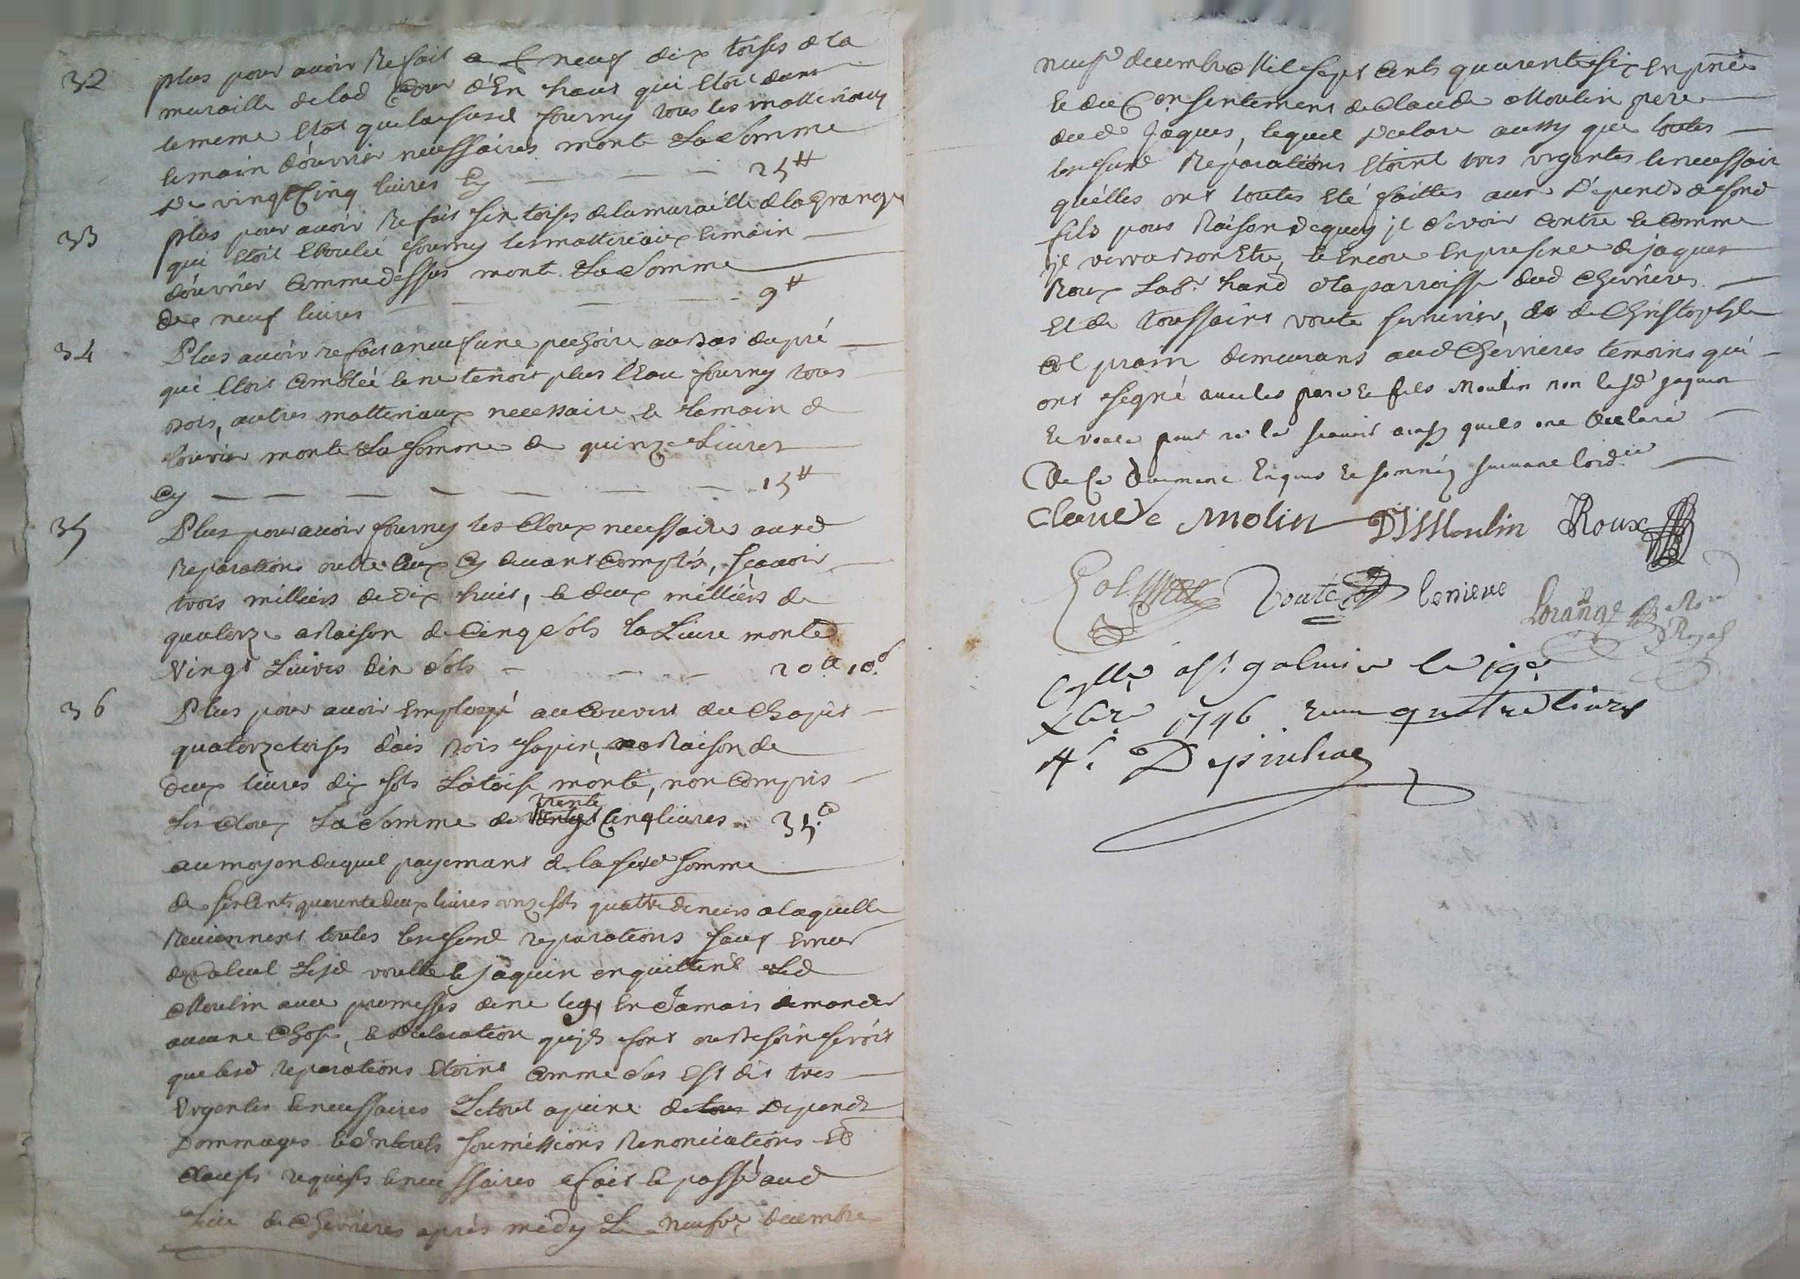 32 plus pour avoir Refait a neuf dix toises de la
muraille delad Cour d'En haut qui Etoit dans
le meme Etat que la susd fourny tous les matteriaux
le main d'ouvrier necessaires monte La Somme
De vingt Cinq livres Cy 25#
33 plus pour avoir Refait six toises de la muraille de la Grange
qui Etoit Eboulée fourny les matteriaux le main
d'ouvrier Comme dessus monte La Somme
de neuf livres 9#
34 Plus avoir refait a neuf une pechoire au bas du pré
qui Etoit Comblée le ne tenoit plus l'Eau fourny tous
bois, autres matteriaux necessaire le la main de
louvrier monte La Somme de quinze Livres
Cy 15#
35 Plus pour avoir fourny les Cloux necessaires ausd
Reparations outre Ceux Cy devant Comptés, Scavoir
trois milliers de dix huit, le deux milliers de
quatorze a Raison de Cinq Sols la Livre monte
Vingt Livres dix Sols 20# 10s
36 Plus pour avoir Employé au Couvert du Chapit
quatorze toises d'ais bois Sapin, a Raison de
deux livres dix sols La toise monte, non Compris
Les Cloux La Somme de trente Cinq livres 35#
au moyen duquel payemant de la susd Somme
de six Cents quarente deux livres onze sols quattre deniers a laquelle
Reviennent toutes les susd reparations sauf Erreur
de Calcul Lesd voutte le jaquin en quittent Led
Moulin avec promesses de ne leg En Jamais demander
aucune Chose, le declaration qu'ils font ou Besoin seroit
que lesd reparations Etoint Comme dit Est dit tres
Urgentes le necessaires Le tout a peine de tous Depends
Dommages le Interets soumissions Renonciations Et
Clauses requises le necessaires a fait le passé aud
Lieu de Chevrieres apres midy Le neufve decembre
neufve decembre Mil Sept Cents quarente six En pnce
le du Consentement de Claude Moulin pere
dud Jaques, lequel declare aussy que toutes
les susd Réparations Etoint tres urgentes le necessair
qu'elles ont toutes Eté faittes aux Dépends de sond
fils pour Raison de quoy il
je verra bon Etre, le Encore En presence de jaques
Roux Labr hand la parroisse dud Chevrieres
Et de Toussaint voute serrurier, de Christophle
Col demeurans aud Chevrieres temoins qui
ont signé avec les pere le fils Moulin non lesd jaquin
le voute pour ne le scavoir ainsy quils ont declaré
De Ce Deument Enquis le sommés suivant lordce
Claude Molin JMoulin JRoux
Voute
Lorange Nore
Royal
Cllé a St galmier le 19e
Xbre 1746 quatre livres